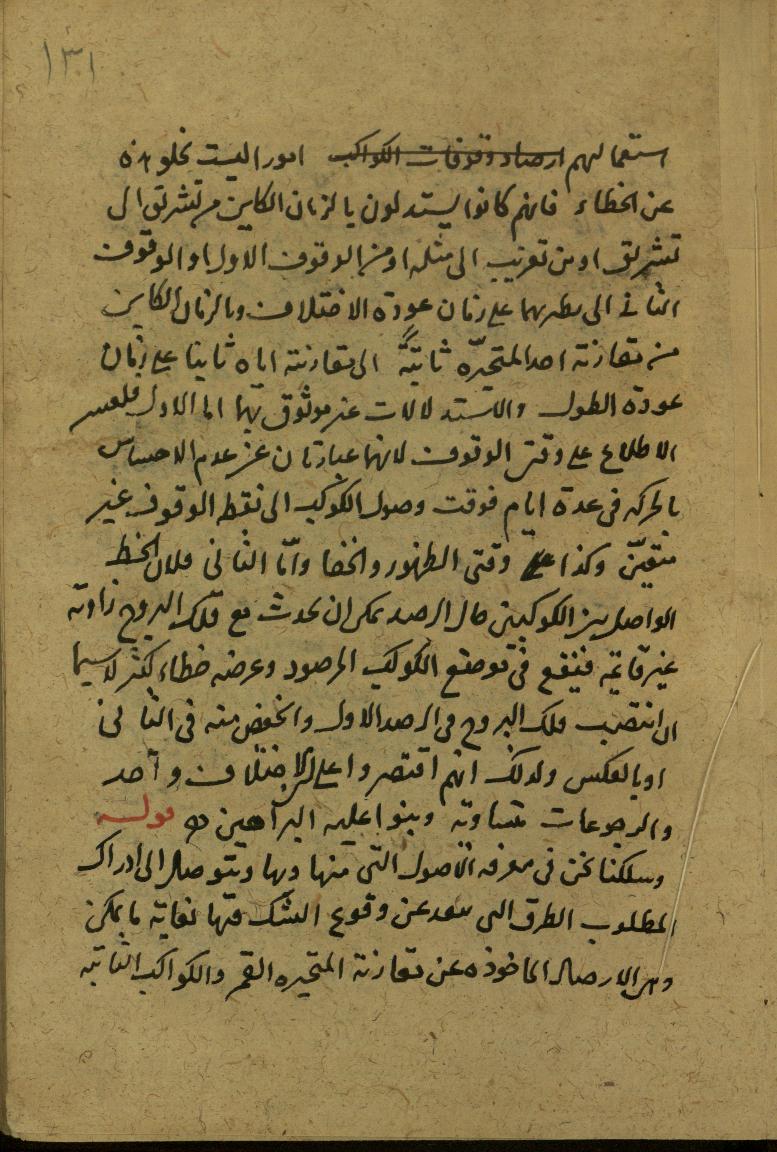 ١٣١
استعمالهم ارصاد وقوفات الكواكب امورا ليست تخلو هذه
عن الخطاء فانهم كانوا يستدلون بالزمان الكاين من تشريق الى
تشريق او من تغريب الى مثله او من الوقوف الاول او الوقوف
الثانى الى نظيريهما على زمان عودة الاختلاف وبالزمان الكاين
من مقارنة احد المتحيره ثابتة الى مقارنته اياه ثانيا على زمان
عودة الطول والاستدلالات غير موثوق بها اما الاول فلعسر
الاطلاع على وقتى الوقوف لانهما عبارتان عن عدم الاحساس
بالحركه فى عدة ايام فوقت وصول الكوكب الى نقط الوقوف غير
متعين وكذا على وقتى الظهور والخفا واما الثانى فلان الخط
الواصل بين الكوكبين حال الرصد يمكن ان يحدث مع فلك البروج زاوية
غير قايمه فيقع فى موضع الكوكب المرصود وعرضه خطاء كثير لاسيما
ان انتصب فلك البروج فى الرصد الاول وانخفض منه فى الثانى
او بالعكس ولذلك انهم اقتصروا على اختلاف واحد
والرجوعات متساوية وبنوا عليه البراهين قوله
وسلكنا نحن فى معرفة الاصول التى منها وبها ويتوصل الى ادراك
المطلوب الطرق التى تبعد عن وقوع الشك فيها بغاية ما يمكن
وهى الارصاد الماخوذه عن مقارنة المتحيره القمر والكواكب الثابته